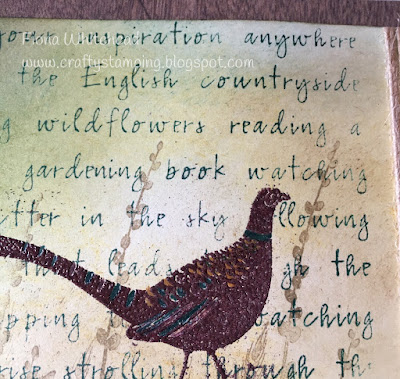 your inspiration anywhere
Fiona Whitehead
www.craftystamping.blogspot.com
the English countryside
g wildflowers reading a
gardening book watching
tter in the sky llowing
that leads gh the
pping atching
rise strolling through the